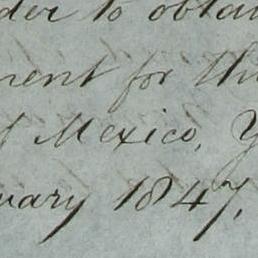 der to obtai
ment for th
f Mexico, Y
uary 1847,